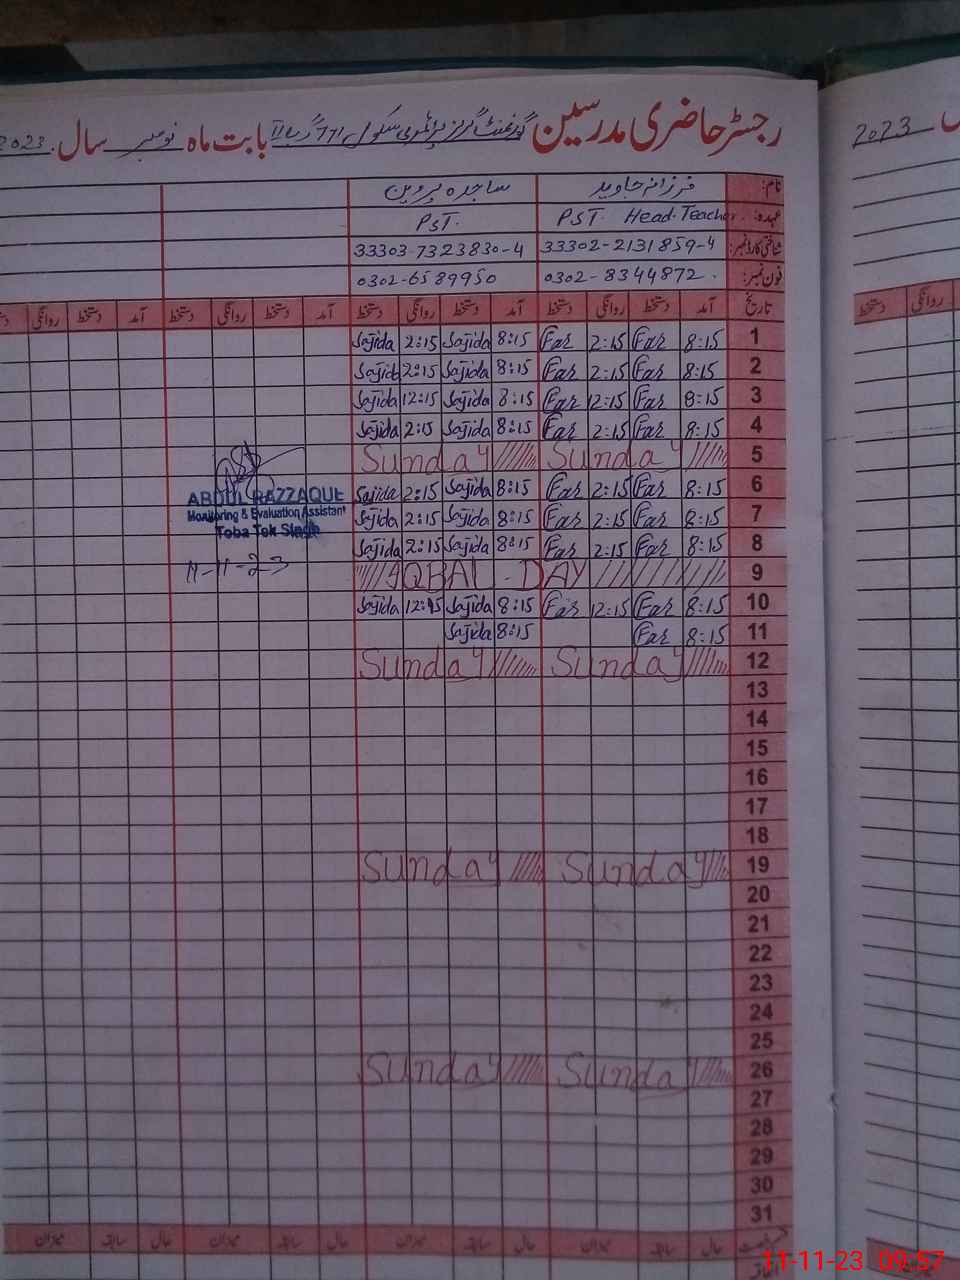 رجسٹر حاضری مدرسین گورنمنٹ گرلز پرائمری سکول 771 گ ب II بابت ماہ نومبر سال 2023
نام: فرزانہ جاوید ساجدہ پروین
عہدہ: PST Head Teacher. PST.
شناختی کارڈ نمبر: 33302-2131859-4 33303-7323830-4
فون نمبر: 0302-8344872. 0302-6589950
تاریخ آمد دستخط روانگی دستخط آمد دستخط روانگی دستخط آمد دستخط روانگی دستخط آمد دستخط روانگی
1 8:15 Far 2:15 Far 8:15 Sajida 2:15 Sajida
2 8:15 Far 2:15 Far 8:15 Sajida 2:15 Sajid
3 8:15 Far 12:15 Far 8:15 Sajida 12:15 Sajida
4 8:15 Far 2:15 Far 8:15 Sajida 2:15 Sajida
5 Sunday Sunday
6 8:15 Far 2:15 Far 8:15 Sajida 2:15 Sajida
7 8:15 Far 2:15 Far 8:15 Sajida 2:15 Sajida
8 8:15 Far 2:15 Far 8:15 Sajida 2:15 Sajida
9 IQBAL - DAY
10 8:15 Far 12:15 Far 8:15 Sajida 12:15 Sajida
11 8:15 Far 8:15 Sajida
12 Sunday Sunday
13
14
15
16
17
18
19 Sunday Sunday
20
21
22
23
24
25
26 Sunday Sunday
27
28
29
30
31
حال سابقہ میزان حال سابقہ میزان حال سابقہ میزان حال سابقہ میزان
ABDUL RAZZAQUE
Monitoring & Evaluation Assistant
Toba Tek Singh
11-11-23
2023
دستخط روانگی
11-11-23 09:57